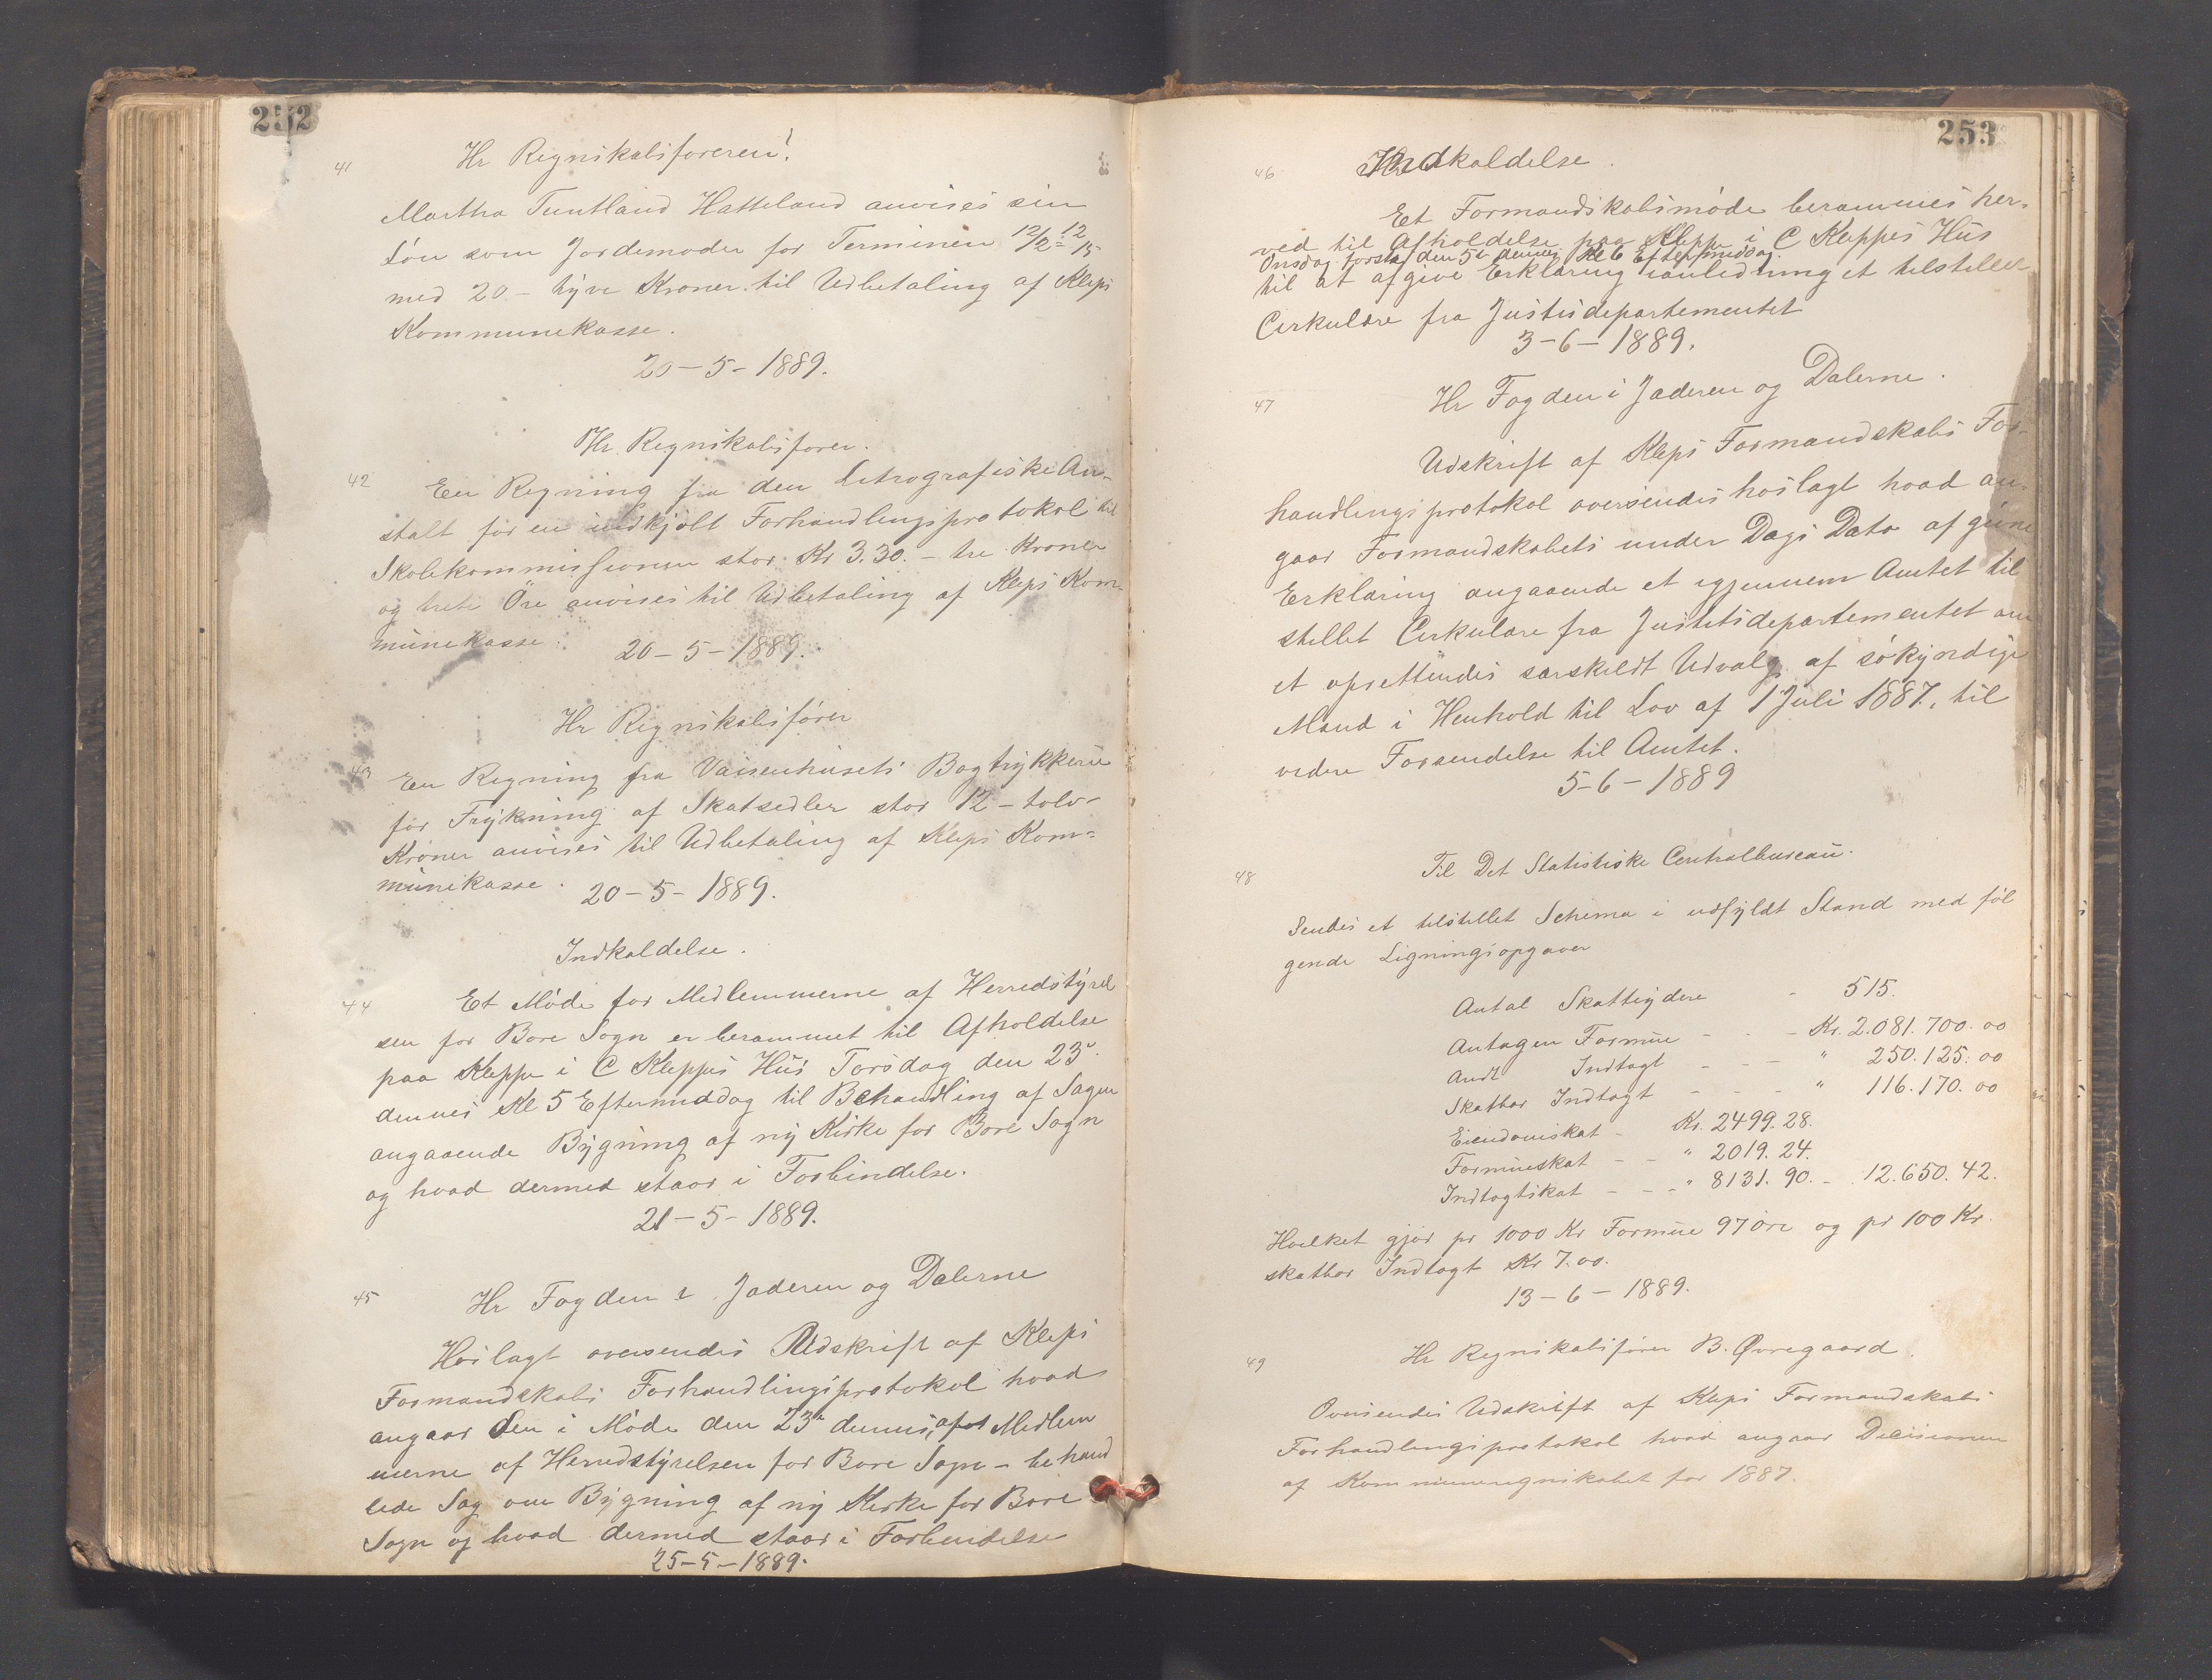 252
41 Hr Regnskabsføreren!
Martha Tuntland Hatteland anvises sin
Løn som Jordemoder for Terminen 12/2 - 12/5
med 20 - tyve Kroner til Udbetaling af Kleps
Kommunekasse.
20-5-1889.
Hr. Regnskabsfører.
42 En Regning fra den Litografiske An-
stalt for en indkjøbt Forhandlingsprotokol til
Skolekommissionen stor Kr 3.30. - tre Kroner
og treti Øre anvises til Udbetaling af Kleps Kom-
munekasse.
20-5-1889.
Hr Regnskabsfører
43 En Regning fra Vaisenhusets Bogtrykkeri
for Trykning af Skatsedler stor 12 - tolv -
Kroner anvises til Udbetaling af Kleps Kom=
munekasse.
20-5-1889.
Indkaldelse.
44 Et Møde for Medlemmerne af Herredstyrel
sen for Bore Sogn er berammet til Afholdelse
paa Kleppe i C Kleppes Hus Torsdag den 23de
dennes Kl 5 Eftermiddag til Behandling af Sagen
angaaende Bygning af ny Kirke for Bore Sogn
og hvad dermed staar i Forbindelse.
21-5-1889.
45 Hr Fogden i Jæderen og Dalerne
Hoslagt oversendes Udskrift af Kleps
Formandskabs Forhandlingsprotokol hvad
angaar den i Møde den 23de dennes, af Medlem
merne af Herredstyrelsen for Bore Sogn - behand
lede Sag om Bygning af ny Kirke for Bore
Sogn og hvad dermed staar i Forbindelse
25-5-1889.
253
46 Indkaldelse.
Et Formandskabsmøde berammes her-
ved til Afholdelse paa Kleppe i C Kleppes Hus
Onsdag førstk den 5te dennes Kl 6 Eftermiddag.
til at afgive Erklæring ianledning et tilstillet
Cirkulære fra Justisdepartementet
3-6-1889.
47 Hr Fogden i Jæderen og Dalerne.
Udskrift af Kleps Formandskabs For-
handlingsprotokol oversendes hoslagt hvad an-
gaar Formandskabets under Dags Dato afgivne
Erklæring angaaende et igjennem Amtet til
stillet Cirkulære fra Justitsdepartementet om
et opsettendes særskildt Udvalg af søkyndige
Mænd i Henhold til Lov af 1 Juli 1887, til
videre Forsendelse til Amtet.
5-6-1889
48 Til Det Statistiske Centralbureau.
Sendes et tilstillet Schema i udfyldt Stand med føl
gende Ligningsopgaver
Antal Skattydere - 515.
Antagen Formue - - - Kr. 2.081.700.00
Andt Indtægt - - - " 250.125.00
Skatbar Indtægt - - - " 116.170.00
Eiendomskat - Kr. 2499.28.
Formueskat - - " 2019.24.
Indtægtskat - - - " 8131.90. - 12.650.42.
Hvilket gjør pr 1000 Kr Formue 97 øre og pr 100 Kr.
skatbar Indtægt Kr 7.00.
13-6-1889.
49 Hr Regnskabsfører B. Øvregaard.
Oversendes Udskrift af Kleps Formandskabs
Forhandlingsprotokol hvad angaar Decisionen
af Kommuneregnskabet for 1887.